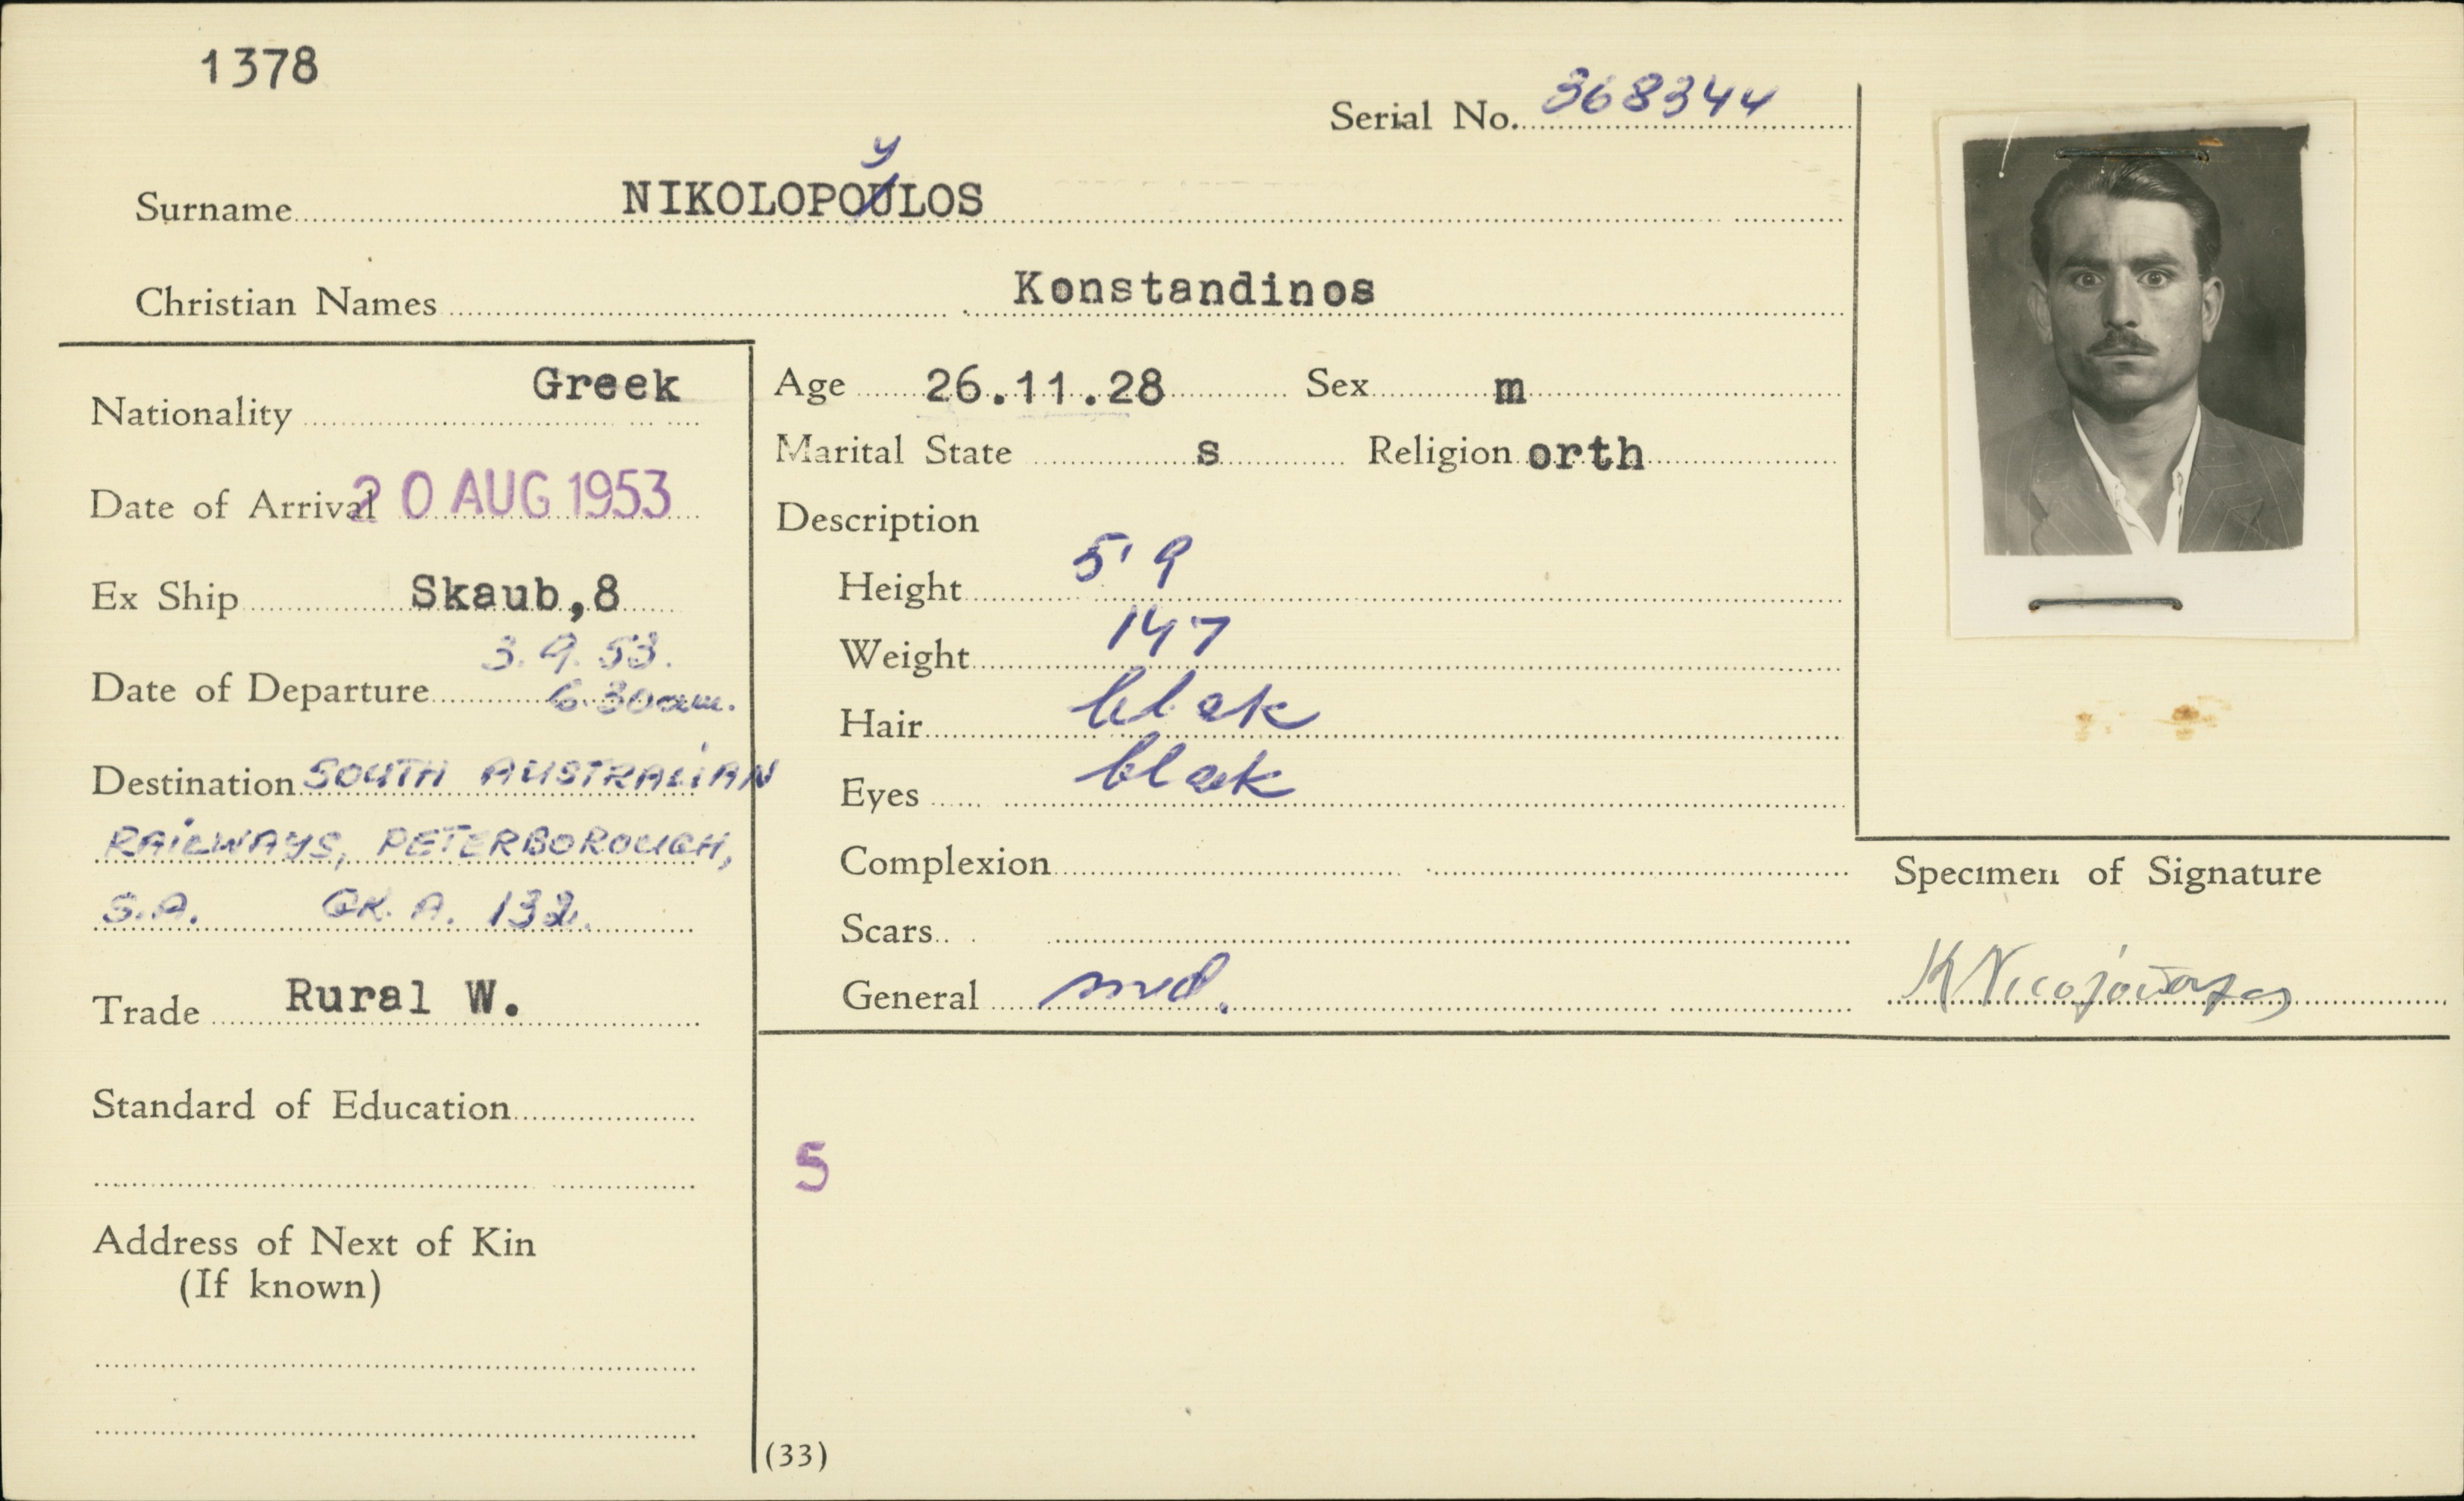 1378
Serial No. 368344
y
Surname NIKOLOPOULOS
Christian Names Konstandinos
Nationality Greek
Date of Arrival 20 AUG 1953
Ex Ship Skaub,8
3.9.53.
Date of Departure 6.30am.
Destination SOUTH AUSTRALIAN
RAILWAYS, PETERBOROUGH,
S.A. GK. A. 132.
Trade Rural W.
Standard of Education
Address of Next of Kin
(If known)
Age 26.11.28 Sex m
Marital State s Religion orth
Description
Height 5'9
Weight 147
Hair blak
Eyes blak
Complexion
Scars
General
5
(33)
Specimen of Signature